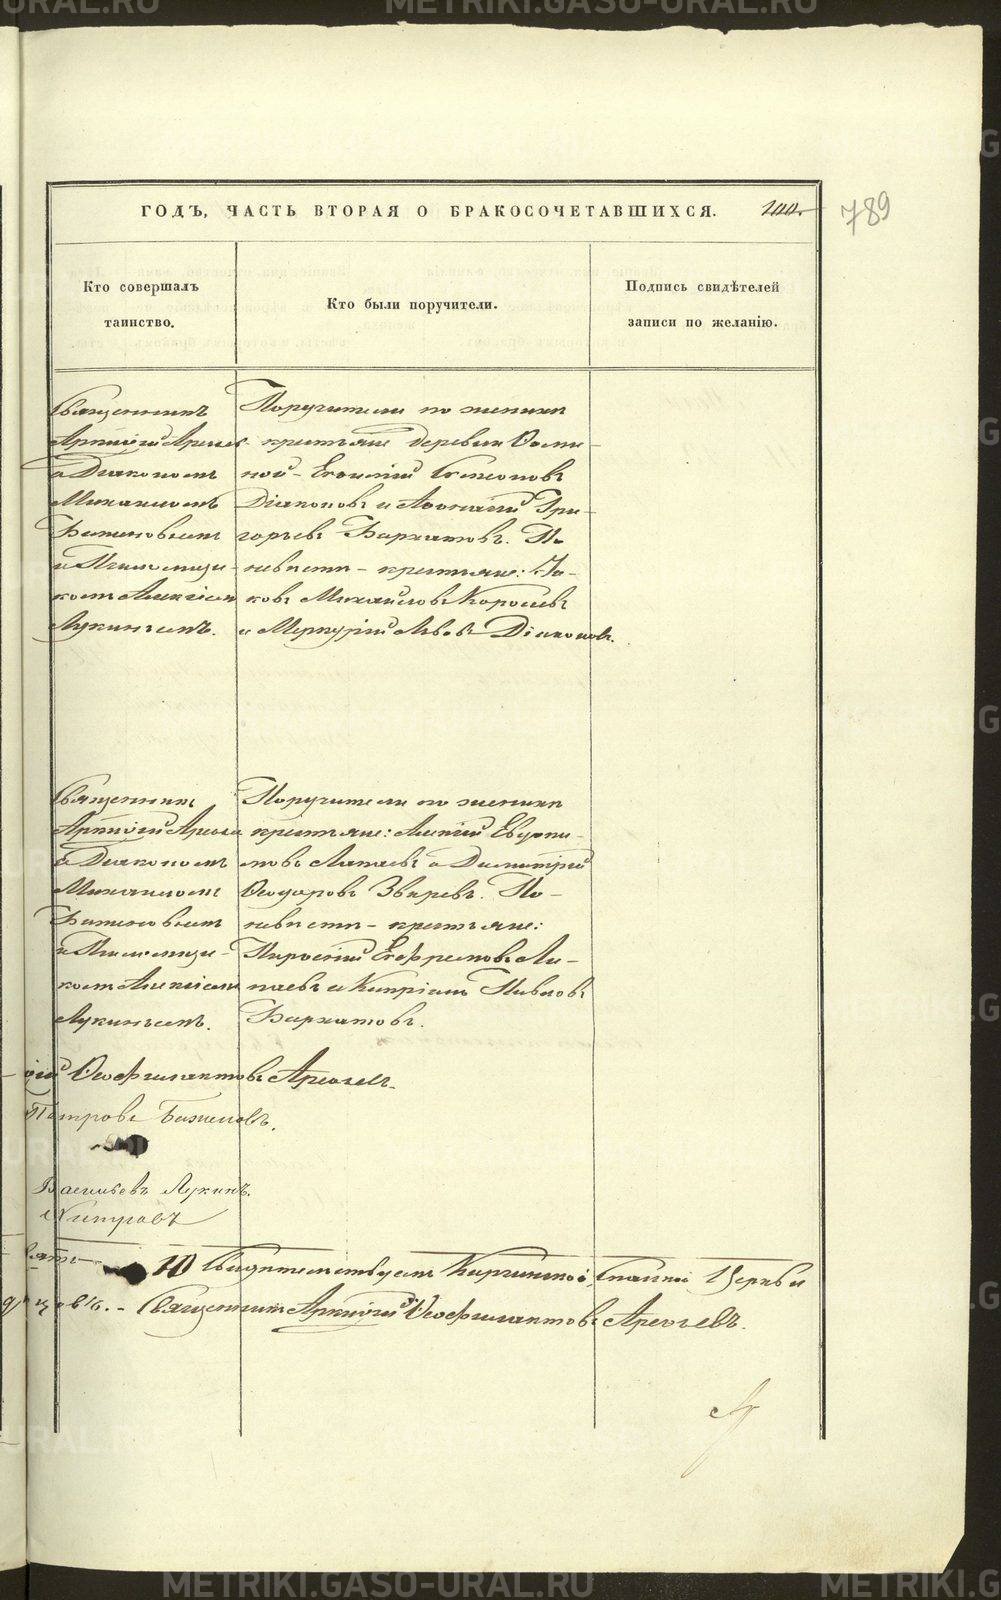 METRIKI.GASO-URAL.RU
ГОДЪ, ЧАСТЬ ВТОРАЯ О БРАКОСОЧЕТАВШИХСЯ.
789
Кто совершалъ
таинство.
Кто были поручители.
Подпись свидѣтелей
записи по желанію.
Священникъ
а Діакономъ
Михаиломъ
Баженовымъ
и Псаломщи-
комъ Алексіемъ
Лукинымъ.
Поручители по женихѣ
крестьяне деревни
ной - Евсигній
Діаконовъ и Аѳонасій Гри-
горьевъ Бархатовъ. По
невѣстѣ - крестьяне: Іа-
ковъ Михайловъ Королевъ
и Меркурій Львовъ Діаконовъ.
Священникъ
а Діакономъ
Михаиломъ
Баженовымъ
и Псаломщи-
комъ Алексіемъ
Лукинымъ.
Поручители по женихѣ
крестьяне: Алексій Евдоки-
мовъ Лапаевъ и Димитрій
Ѳеодоровъ Звѣревъ. По
невѣстѣ - крестьяне:
Ефремовъ Ла-
паевъ и Кипріанъ Павловъ
Бархатовъ.
Ѳеофилактовъ
Петровъ Баженовъ.
Васильевъ Лукинъ.
Свидѣтельствуетъ Церкви
Священникъ Ѳеофилактовъ
METRIKI.GASO-URAL.RU